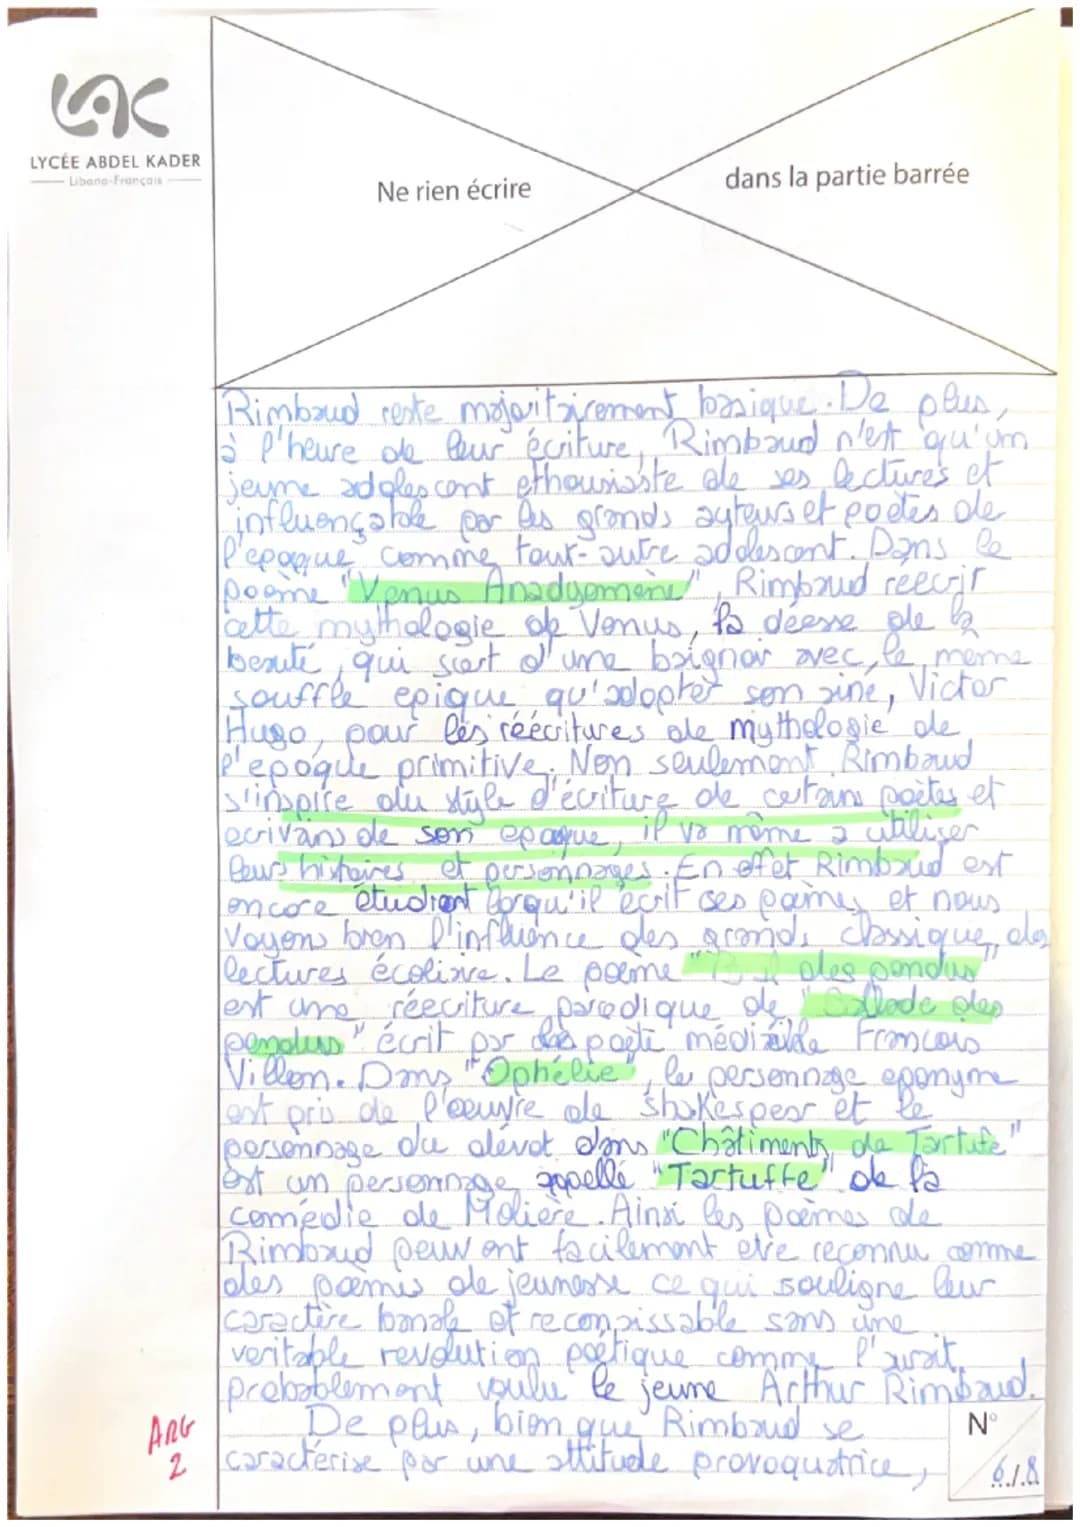 LAC
LYCÉE ABDEL KADER
Libano-Français
Ne rien écrire
dans la partie barrée
Rimbaud reste majoritairement basique. De plus,
à l'heure de leur écriture, Rimbaud n'est qu'un
jeune adolescent ethousiaste de ses lectures et
influençable par les grands auteurs et poètes de
l'epoque comme tout-autre adolescent. Dans le
poème "Venus Anadyomène", Rimbaud réécrit
cette mythologie de Venus, la déesse de la
beauté, qui sort d'une baignoir avec le meme
souffle epique qu'adopter son ainé, Victor
Hugo, pour les réécritures de mythologie de
l'epoque primitive. Non seulement Rimbaud
s'inspire du style d'écriture de certains poètes et
ecrivains de son epoque, il va même a utiliser
leurs histoires et personnages. En effet Rimbaud est
encore étudiant lorqu'il écrit ses poèmes et nous
voyons bien l'influence des grands classique, des
lectures écoliaire. Le poème " des pendus"
est une réecriture parodique de "Ballade des
pendus" écrit par poète François
Villon. Dans "Ophélie", le personnage eponyme
est pris de l'oeuvre de Shakespear et le
personnage du dévot dans "Châtiments de Tartufe"
est un personnage appellé "Tartuffe" de la
comédie de Molière. Ainsi les poèmes de
Rimbaud peuvent facilement etre reconnu comme
des poèmes de jeunesse ce qui souligne leur
caractère banale et reconnaissable sans une
veritable revolution poétique comme l'aurait
probablement voulu le jeune Arthur Rimbaud.
De plus, bien que Rimbaud se
caractérise par une attitude provoquatrice,
ARG
2
N°
6/8